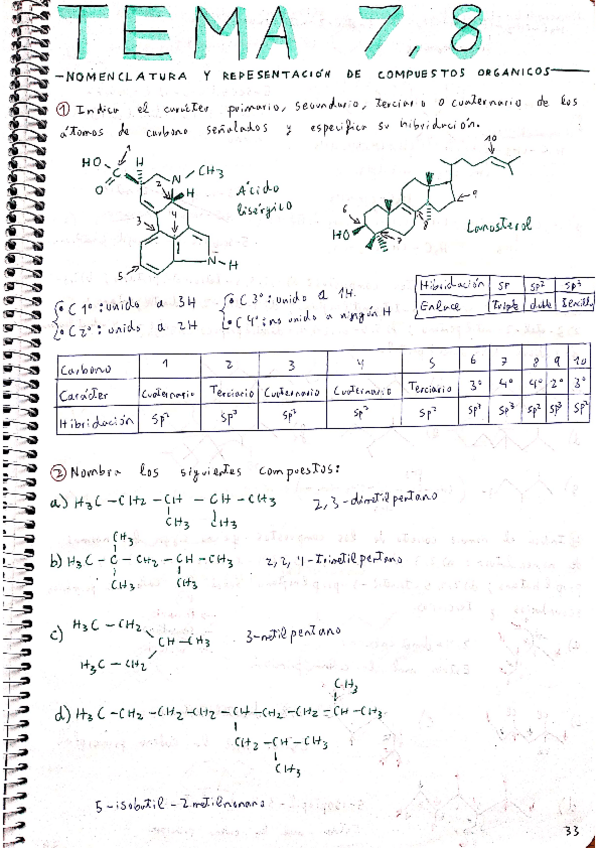 TEMA 7,8
-NOMENCLATURA Y REPESENTACIÓN DE COMPUESTOS ORGANICOS-
① Indica el carácter primario, secundario, terciario o cuaternario de los
átomos de carbono señalados y especifica su hibridación.
HO
O
C
1
H
2
N - CH3
H
3
4
5
N-H
Ácido
lisérgico
10
9
8
7
6
HO
Lanosterol
Hibridación sp sp² sp³
Enlace Triple doble Sencillo
• C 1º: unido a 3H
• C 2º: unido a 2H
• C 3º: unido a 1H.
• C 4º: no unido a ningún H
Carbono 1 2 3 4 5 6 7 8 9 10
Carácter Cuaternario Terciario Cuaternario Cuaternario Terciario 3º 4º 4º 2º 3º
Hibridación sp² sp³ sp² sp² sp² sp³ sp³ sp² sp³ sp²
② Nombra los siguientes compuestos:
a) H3C - CH2 - CH - CH - CH3 2,3-dimetilpentano
CH3 CH3
CH3
b) H3C - C - CH2 - CH - CH3 2,2,4-trimetilpentano
CH3 CH3
c) H3C - CH2
CH - CH3 3-metilpentano
H3C - CH2
CH3
d) H3C - CH2 - CH2 - CH2 - CH - CH2 - CH2 - CH2 - CH - CH3
CH2 - CH - CH3
CH3
5-isobutil-2metilnonano
33